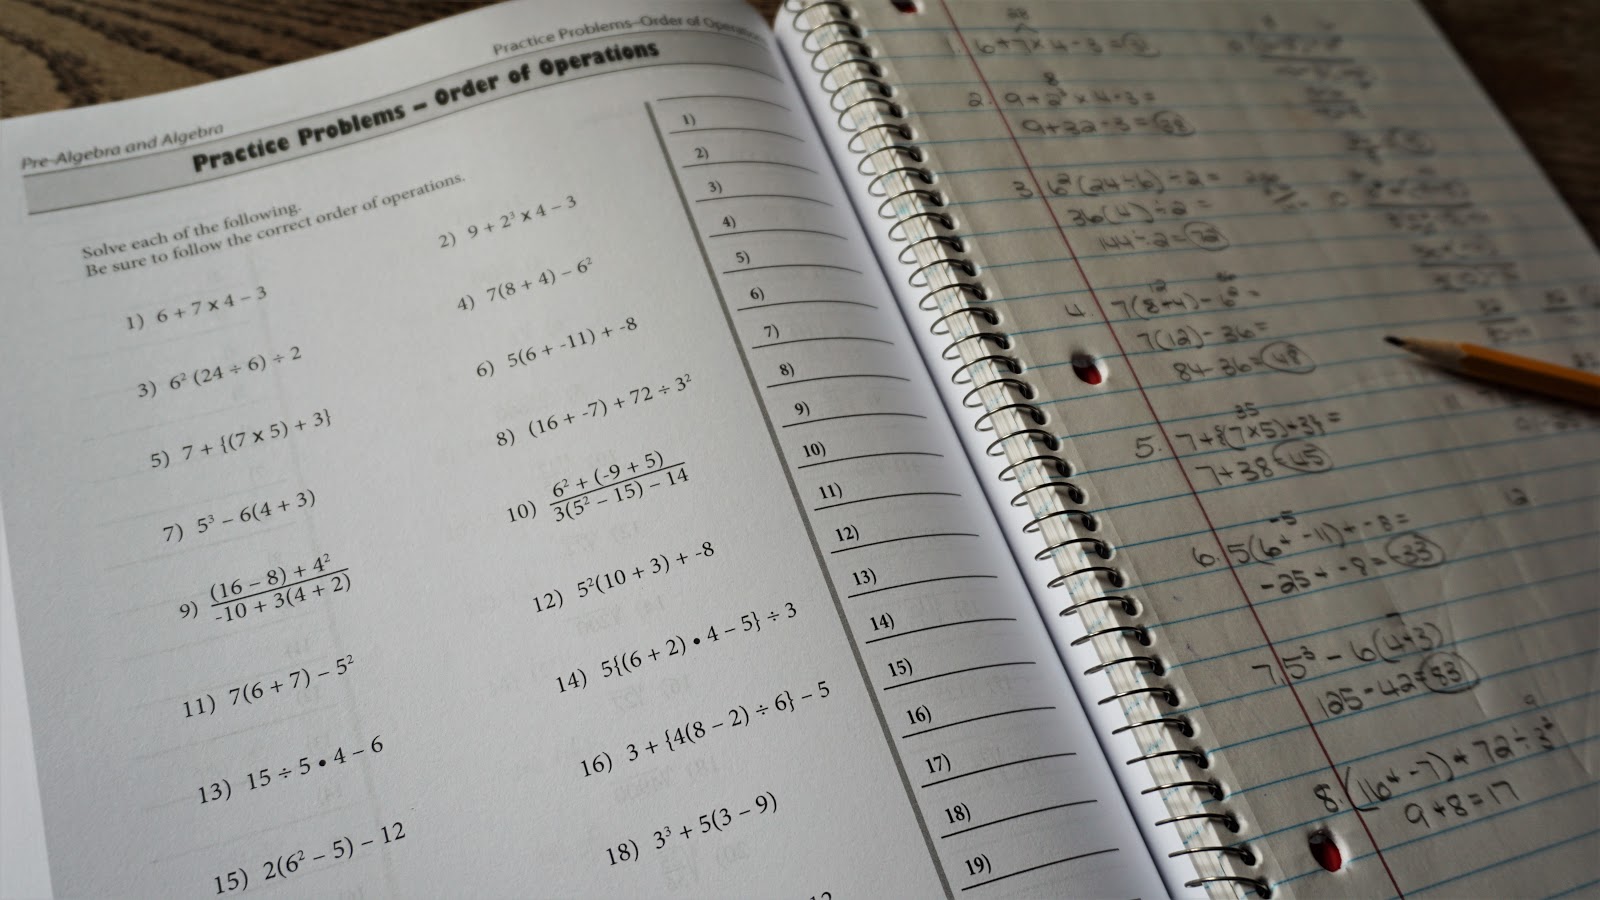 Practice Problems–Order of Operations
Pre-Algebra and Algebra
Practice Problems – Order of Operations
Solve each of the following.
Be sure to follow the correct order of operations.
1) 6 + 7 x 4 – 3
2) 9 + 2³ x 4 – 3
3) 6² (24 ÷ 6) ÷ 2
4) 7(8 + 4) – 6²
5) 7 + {(7 x 5) + 3}
6) 5(6 + -11) + -8
7) 5³ – 6(4 + 3)
8) (16 + -7) + 72 ÷ 3²
9) (16 – 8) + 4²
-10 + 3(4 + 2)
10) 6² + (-9 + 5)
3(5² – 15) – 14
11) 7(6 + 7) – 5²
12) 5²(10 + 3) + -8
13) 15 ÷ 5 • 4 – 6
14) 5{(6 + 2) • 4 – 5} ÷ 3
15) 2(6² – 5) – 12
16) 3 + {4(8 – 2) ÷ 6} – 5
18) 3³ + 5(3 – 9)
1)
2)
3)
4)
5)
6)
7)
8)
9)
10)
11)
12)
13)
14)
15)
16)
17)
18)
19)
28
1. 6+7×4-3=
8
2. 9+2³×4-3=
9+32-3=38
3. 6²(24÷6)÷2=
36(4)÷2=
144÷2=72
12 36
4. 7(8+4)-6²=
7(12)-36=
84-36=48
35
5. 7+{(7×5)+3}=
7+38=45
-5
6. 5(6+-11)+-8=
-25+-8=-33
7
7. 5³-6(4+3)
125-42=83
9
8. (16+-7)+72÷3²
9+8=17
12